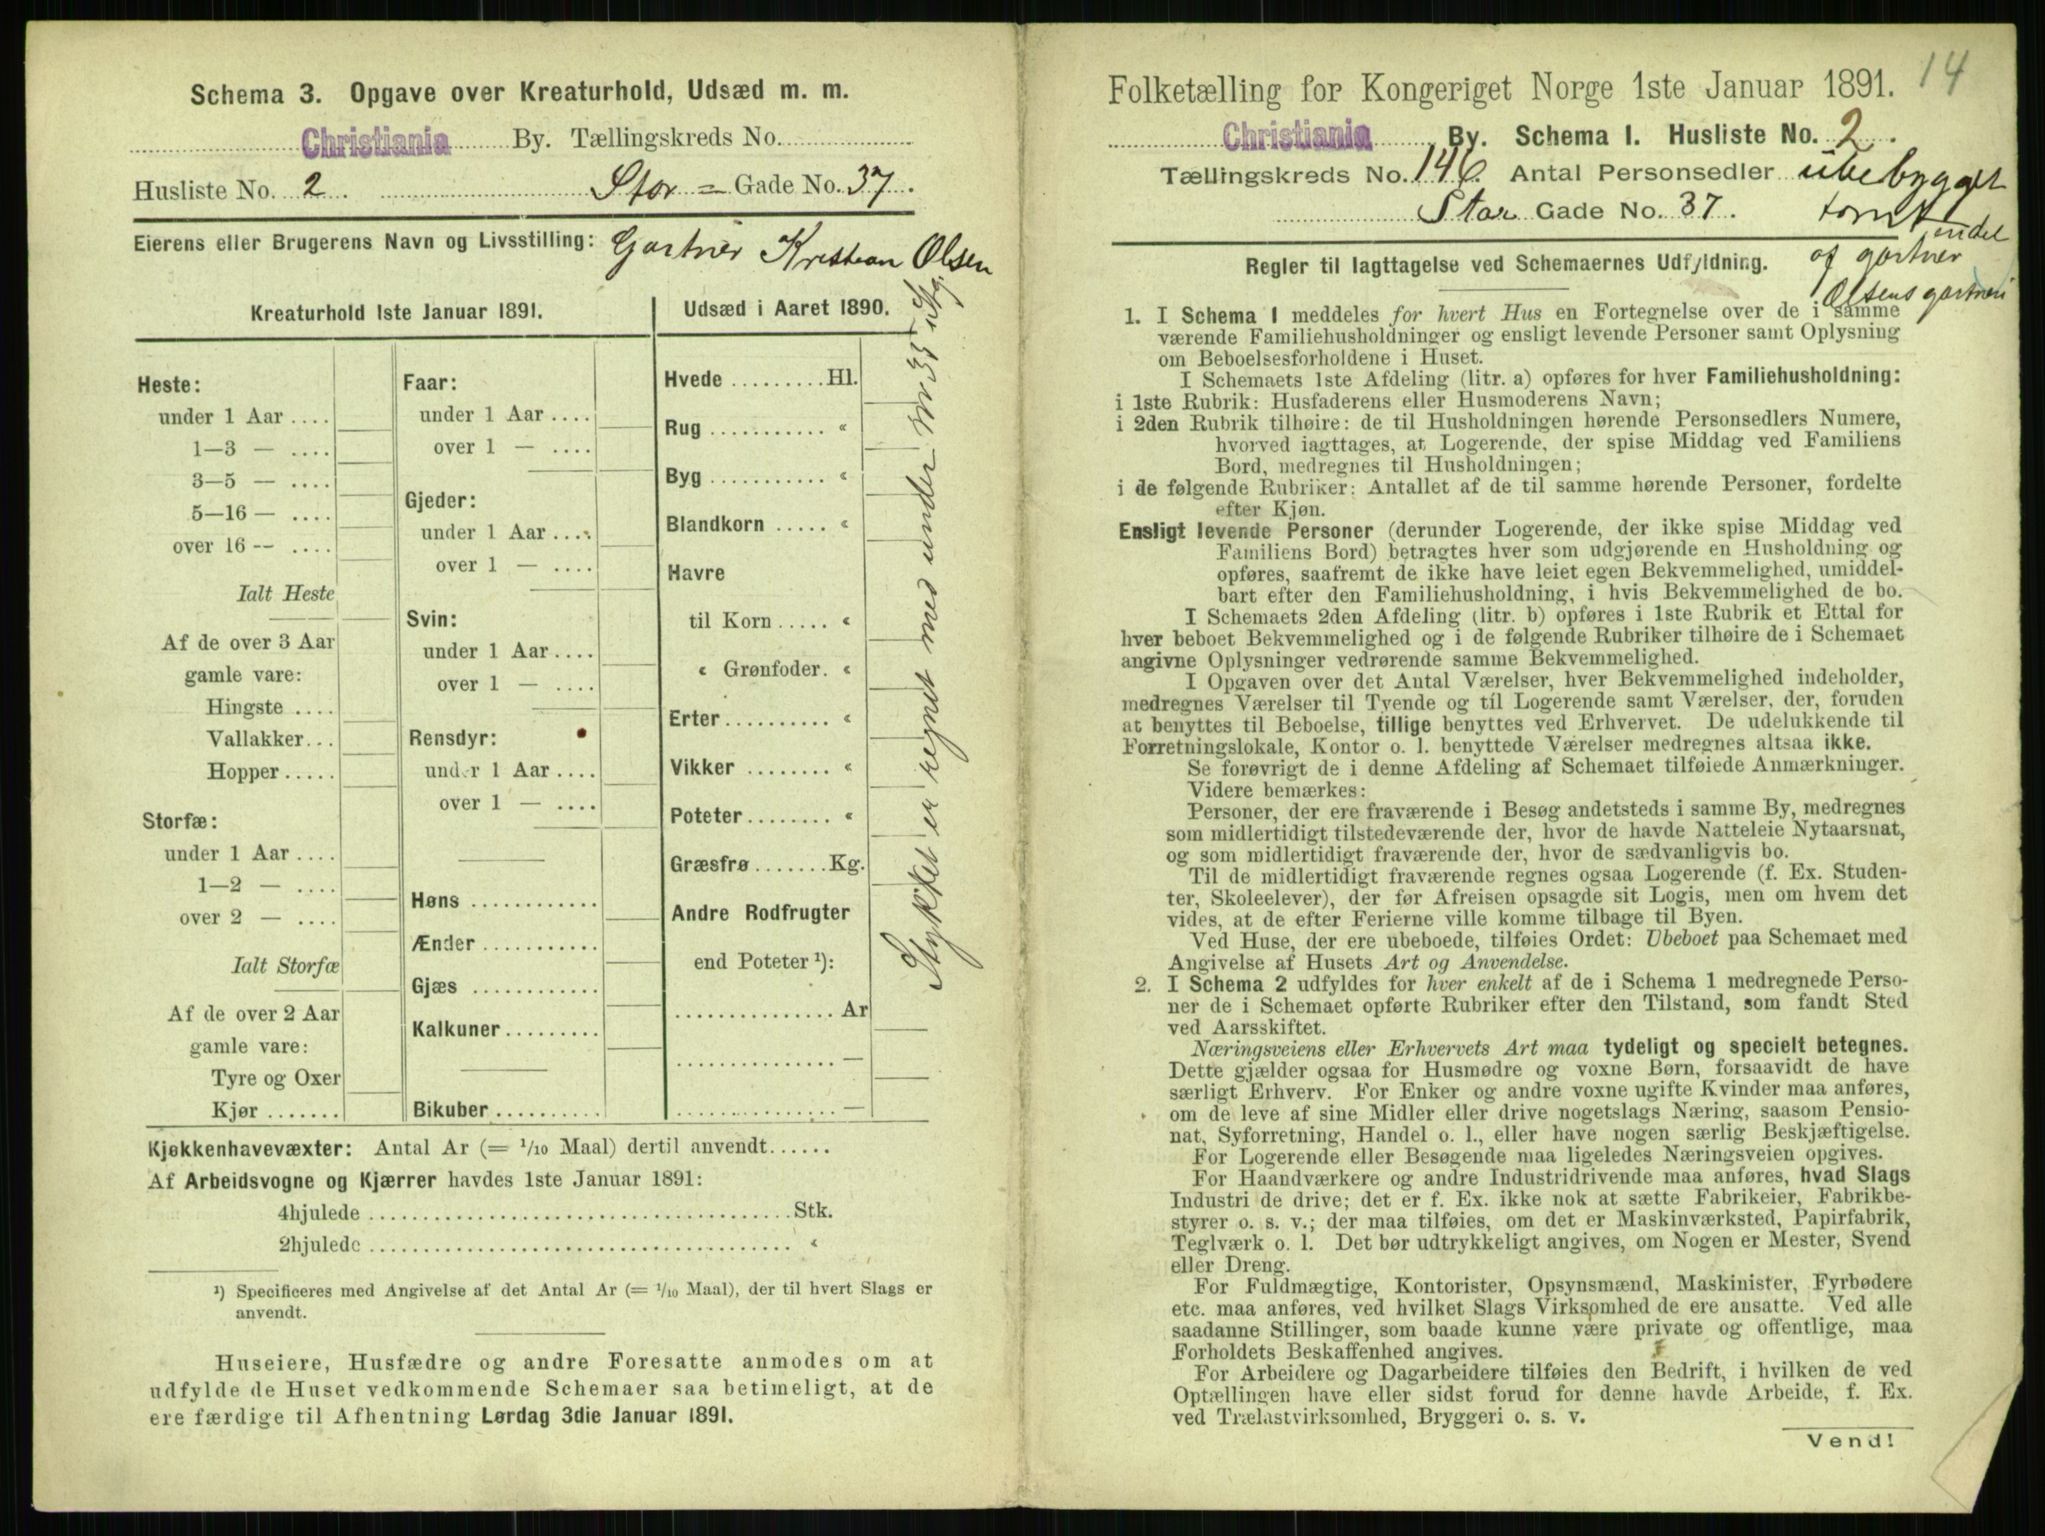 Schema 3. Opgave over Kreaturhold, Udsæd m. m.
Christiania By. Tællingskreds No.
Husliste No. 2. Stor = Gade No. 37.
Eierens eller Brugerens Navn og Livsstilling: Gartner Kristian Olsen
Kreaturhold 1ste Januar 1891.
Heste:
under 1 Aar ....
1—3 — ....
3—5 — ....
5—16 — ....
over 16 -- ....
Ialt Heste
Af de over 3 Aar
gamle vare:
Hingste ....
Vallakker...
Hopper.....
Storfæ:
under 1 Aar ....
1—2 — ....
over 2 — ....
Ialt Storfæ
Af de over 2 Aar
gamle vare:
Tyre og Oxer
Kjør .......
Faar:
under 1 Aar ....
over 1 — ....
Gjeder:
under 1 Aar ....
over 1 — ....
Svin:
under 1 Aar ....
over 1 — ....
Rensdyr:
under 1 Aar ....
over 1 — ....
Høns ............
Ænder ...........
Gjæs ............
Kalkuner.........
Bikuber ..........
Udsæd i Aaret 1890.
Hvede .........Hl.
Rug ........... «
Byg ........... «
Blandkorn ..... «
Havre
til Korn ..... «
« Grønfoder. «
Erter .......... «
Vikker ........ «
Poteter ........ «
Græsfrø .......Kg.
Andre Rodfrugter
end Poteter ¹):
............... Ar
............... —
............... —
Stykket er regnet med under No 35 Stg.
Kjøkkenhavevæxter: Antal Ar (= 1/10 Maal) dertil anvendt......
Af Arbeidsvogne og Kjærrer havdes 1ste Januar 1891:
4hjulede ........................................Stk.
2hjulede ........................................ «
¹) Specificeres med Angivelse af det Antal Ar (= 1/10 Maal), der til hvert Slags er
anvendt.
Huseiere, Husfædre og andre Foresatte anmodes om at
udfylde de Huset vedkommende Schemaer saa betimeligt, at de
ere færdige til Afhentning Lørdag 3die Januar 1891.
14
Folketælling for Kongeriget Norge 1ste Januar 1891.
Christiania By. Schema 1. Husliste No. 2.
Tællingskreds No. 146 Antal Personsedler ubebygget
Stor Gade No. 37. tomt, endel
af gartner
Olsens gartneri
Regler til Iagttagelse ved Schemaernes Udfyldning.
1. I Schema 1 meddeles for hvert Hus en Fortegnelse over de i samme
værende Familiehusholdninger og ensligt levende Personer samt Oplysning
om Beboelsesforholdene i Huset.
I Schemaets 1ste Afdeling (litr. a) opføres for hver Familiehusholdning:
i 1ste Rubrik: Husfaderens eller Husmoderens Navn;
i 2den Rubrik tilhøire: de til Husholdningen hørende Personsedlers Numere,
hvorved iagttages, at Logerende, der spise Middag ved Familiens
Bord, medregnes til Husholdningen;
i de følgende Rubriker: Antallet af de til samme hørende Personer, fordelte
efter Kjøn.
Ensligt levende Personer (derunder Logerende, der ikke spise Middag ved
Familiens Bord) betragtes hver som udgjørende en Husholdning og
opføres, saafremt de ikke have leiet egen Bekvemmelighed, umiddel-
bart efter den Familiehusholdning, i hvis Bekvemmelighed de bo.
I Schemaets 2den Afdeling (litr. b) opføres i 1ste Rubrik et Ettal for
hver beboet Bekvemmelighed og i de følgende Rubriker tilhøire de i Schemaet
angivne Oplysninger vedrørende samme Bekvemmelighed.
I Opgaven over det Antal Værelser, hver Bekvemmelighed indeholder,
medregnes Værelser til Tyende og til Logerende samt Værelser, der, foruden
at benyttes til Beboelse, tillige benyttes ved Erhvervet. De udelukkende til
Forretningslokale, Kontor o. l. benyttede Værelser medregnes altsaa ikke.
Se forøvrigt de i denne Afdeling af Schemaet tilføiede Anmærkninger.
Videre bemærkes:
Personer, der ere fraværende i Besøg andetsteds i samme By, medregnes
som midlertidigt tilstedeværende der, hvor de havde Natteleie Nytaarsnat,
og som midlertidigt fraværende der, hvor de sædvanligvis bo.
Til de midlertidigt fraværende regnes ogsaa Logerende (f. Ex. Studen-
ter, Skoleelever), der før Afreisen opsagde sit Logis, men om hvem det
vides, at de efter Ferierne ville komme tilbage til Byen.
Ved Huse, der ere ubeboede, tilføies Ordet: Ubeboet paa Schemaet med
Angivelse af Husets Art og Anvendelse.
2. I Schema 2 udfyldes for hver enkelt af de i Schema 1 medregnede Perso-
ner de i Schemaet opførte Rubriker efter den Tilstand, som fandt Sted
ved Aarsskiftet.
Næringsveiens eller Erhvervets Art maa tydeligt og specielt betegnes.
Dette gjælder ogsaa for Husmødre og voxne Børn, forsaavidt de have
særligt Erhverv. For Enker og andre voxne ugifte Kvinder maa anføres,
om de leve af sine Midler eller drive nogetslags Næring, saasom Pensio-
nat, Syforretning, Handel o. l., eller have nogen særlig Beskjæftigelse.
For Logerende eller Besøgende maa ligeledes Næringsveien opgives.
For Haandværkere og andre Industridrivende maa anføres, hvad Slags
Industri de drive; det er f. Ex. ikke nok at sætte Fabrikeier, Fabrikbe-
styrer o. s. v.; der maa tilføies, om det er Maskinværksted, Papirfabrik,
Teglværk o. l. Det bør udtrykkeligt angives, om Nogen er Mester, Svend
eller Dreng.
For Fuldmægtige, Kontorister, Opsynsmænd, Maskinister, Fyrbødere
etc. maa anføres, ved hvilket Slags Virksomhed de ere ansatte. Ved alle
saadanne Stillinger, som baade kunne være private og offentlige, maa
Forholdets Beskaffenhed angives.
For Arbeidere og Dagarbeidere tilføies den Bedrift, i hvilken de ved
Optællingen have eller sidst forud for denne havde Arbeide, f. Ex.
ved Trælastvirksomhed, Bryggeri o. s. v.
Vend!